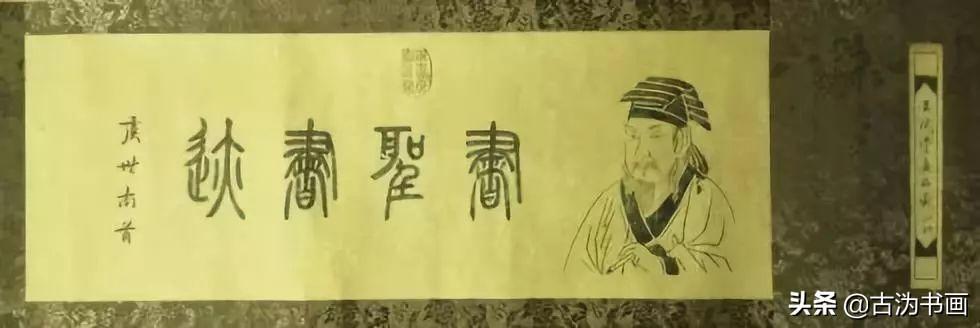 書聖書迹
虞世南首
头条 @古沩书画